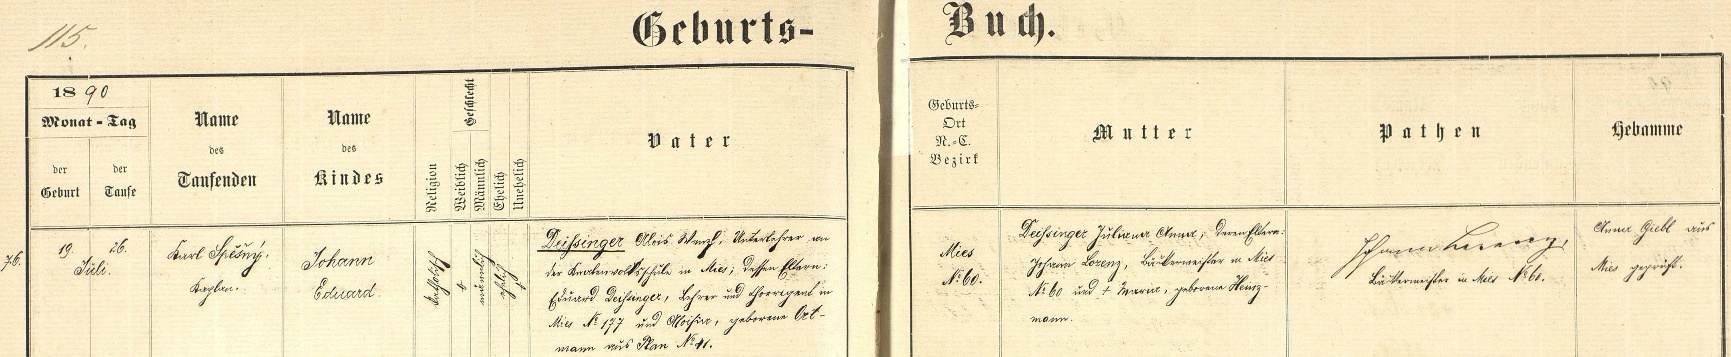 115.
Geburts-Buch.
1890
Monat-Tag
der Geburt
der Taufe
Name des Taufenden
Name des Kindes
Religion
Geschlecht
Weiblich
Männlich
Ehelich
Unehelich
Vater
Geburts-Ort
N.-C.
Bezirk
Mutter
Pathen
Hebamme
76.
19. 26.
Juli.
Karl Spěšný,
Kaplan.
Johann
Eduard
katholisch
1
männlich
ehelich
Deissinger Alois Wenzl, Unterlehrer an
der Knabenvolksschule in Mies; dessen Eltern:
Eduard Deissinger, Lehrer und Chorregent in
Mies No 177 und Aloisia, geborene Ort-
mann aus Plan No 11.
Mies
No 60.
Deissinger Juliana Anna; deren Eltern:
Johann Lorenz, Bäckermeister in Mies
No 60 und † Maria, geborene Heinz-
mann.
Johann Lorenz,
Bäckermeister in Mies No 60.
Anna Giebl aus
Mies geprüft.